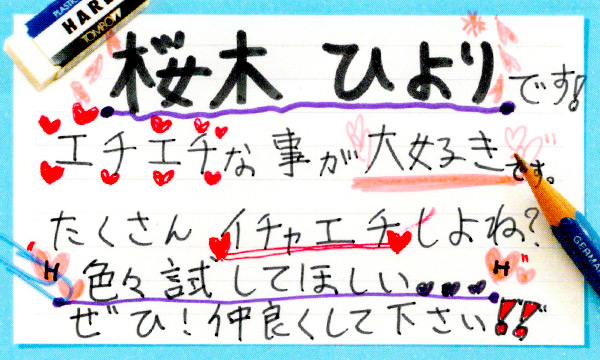 PLASTIC
HARD
TOMBOW
桜木 ひよりです!
エチエチな事が大好きです。
たくさんイチャエチしよね?
H 色々試してほしい H
ぜひ!仲良くして下さい!!
GERMANY